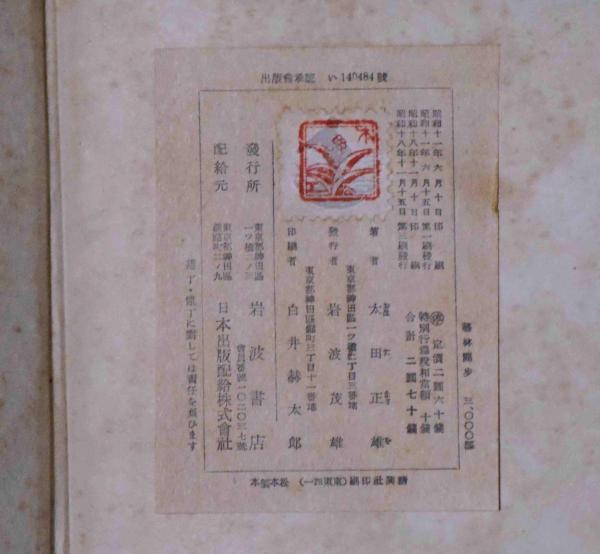 出版會承認 い140484號
昭和十一年六月十日印刷
昭和十一年六月十五日第一刷發行
昭和十八年十一月十日印刷
昭和十八年十一月十五日第三刷發行
藝林閒步 三、〇〇〇部
定價二圓六十錢
特別行爲稅相當額 十錢
合計 二圓七十錢
著者 太田正雄
東京都神田區一ツ橋二丁目三番地
發行者 岩波茂雄
東京都神田區錦町三丁目十一番地
印刷者 白井赫太郎
發行所 東京都神田區一ツ橋二ノ三 岩波書店
會員番號一〇二〇三七號
配給元 東京都神田區淡路町二ノ九 日本出版配給株式會社
落丁・亂丁に對しては責任を負ひます
精興社印刷(東東四一) 松本製本